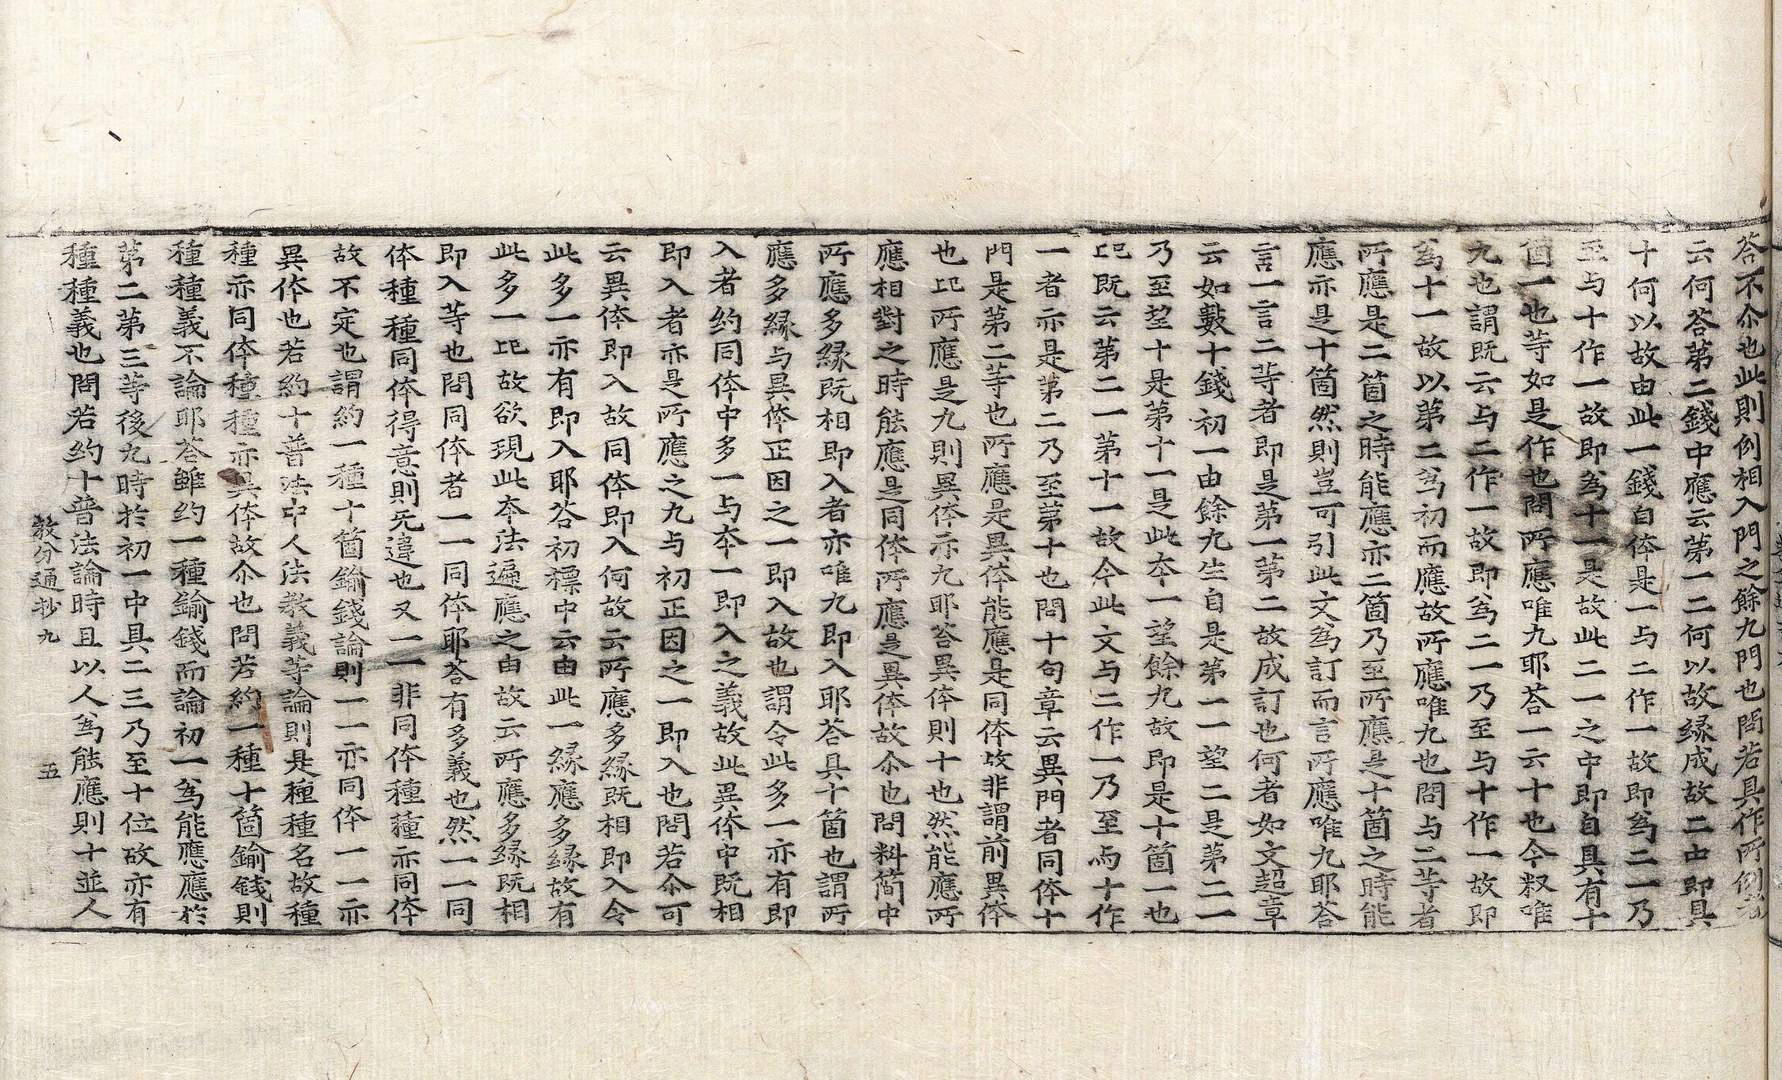 答不尒也此則例相入門之餘九門也問若具作所例者
云何答第二錢中應云第一二何以故縁成故二由即具
十何以故由此一錢自体是一与二作一故即爲二一乃
至与十作一故即爲十一是故此二一之中即自具有十
箇一也等如是作也問所應唯九耶答一云十也今釈唯
九也謂旣云与二作一故即爲二一乃至与十作一故即
爲十一故以第二爲初而應故所應唯九也問与二等者
所應是二箇之時能應亦二箇乃至所應是十箇之時能
應亦是十箇然則豈可引此文爲訂而言所應唯九耶答
言一言二等者即是第一第二故成訂也何者如文超章
云如數十錢初一由餘九生自是第一一望二是第二一
乃至望十是第十一是此夲一望餘九故即是十箇一也
旣云第二一第十一故今此文与二作一乃至与十作
一者亦是第二乃至第十也問十句章云異門者同体十
門是第二等也所應是異体能應是同体故非謂前異体
也所應是九則異体亦九耶答異体則十也然能應所
應相對之時能應是同体所應是異体故尒也問料簡中
所應多縁旣相即入者亦唯九即入耶答具十箇也謂所
應多縁与異体正因之一即入故也謂令此多一亦有即
入者約同体中多一与夲一即入之義故此異体中旣相
即入者亦是所應之九与初正因之一即入也問若尒可
云異体即入故同体即入何故云所應多縁旣相即入令
此多一亦有即入耶答初標中云由此一縁應多縁故有
此多一故欲現此夲法遍應之由故云所應多縁旣相
即入等也問同体者一一同体耶答有多義也然一一同
体種種同体得意則无邉也又一一非同体種種亦同体
故不定也謂約一種十箇鍮錢論則一一亦同体一一亦
異体也若約十普法中人法教義等論則是種種名故種
種亦同体種種亦異体故尒也問若約一種十箇鍮錢則
種種義不論耶答雖約一種鍮錢而論初一爲能應應於
第二第三等後九時於初一中具二三乃至十位故亦有
種種義也問若約十普法論時且以人爲能應則十並人
教分通抄九　五